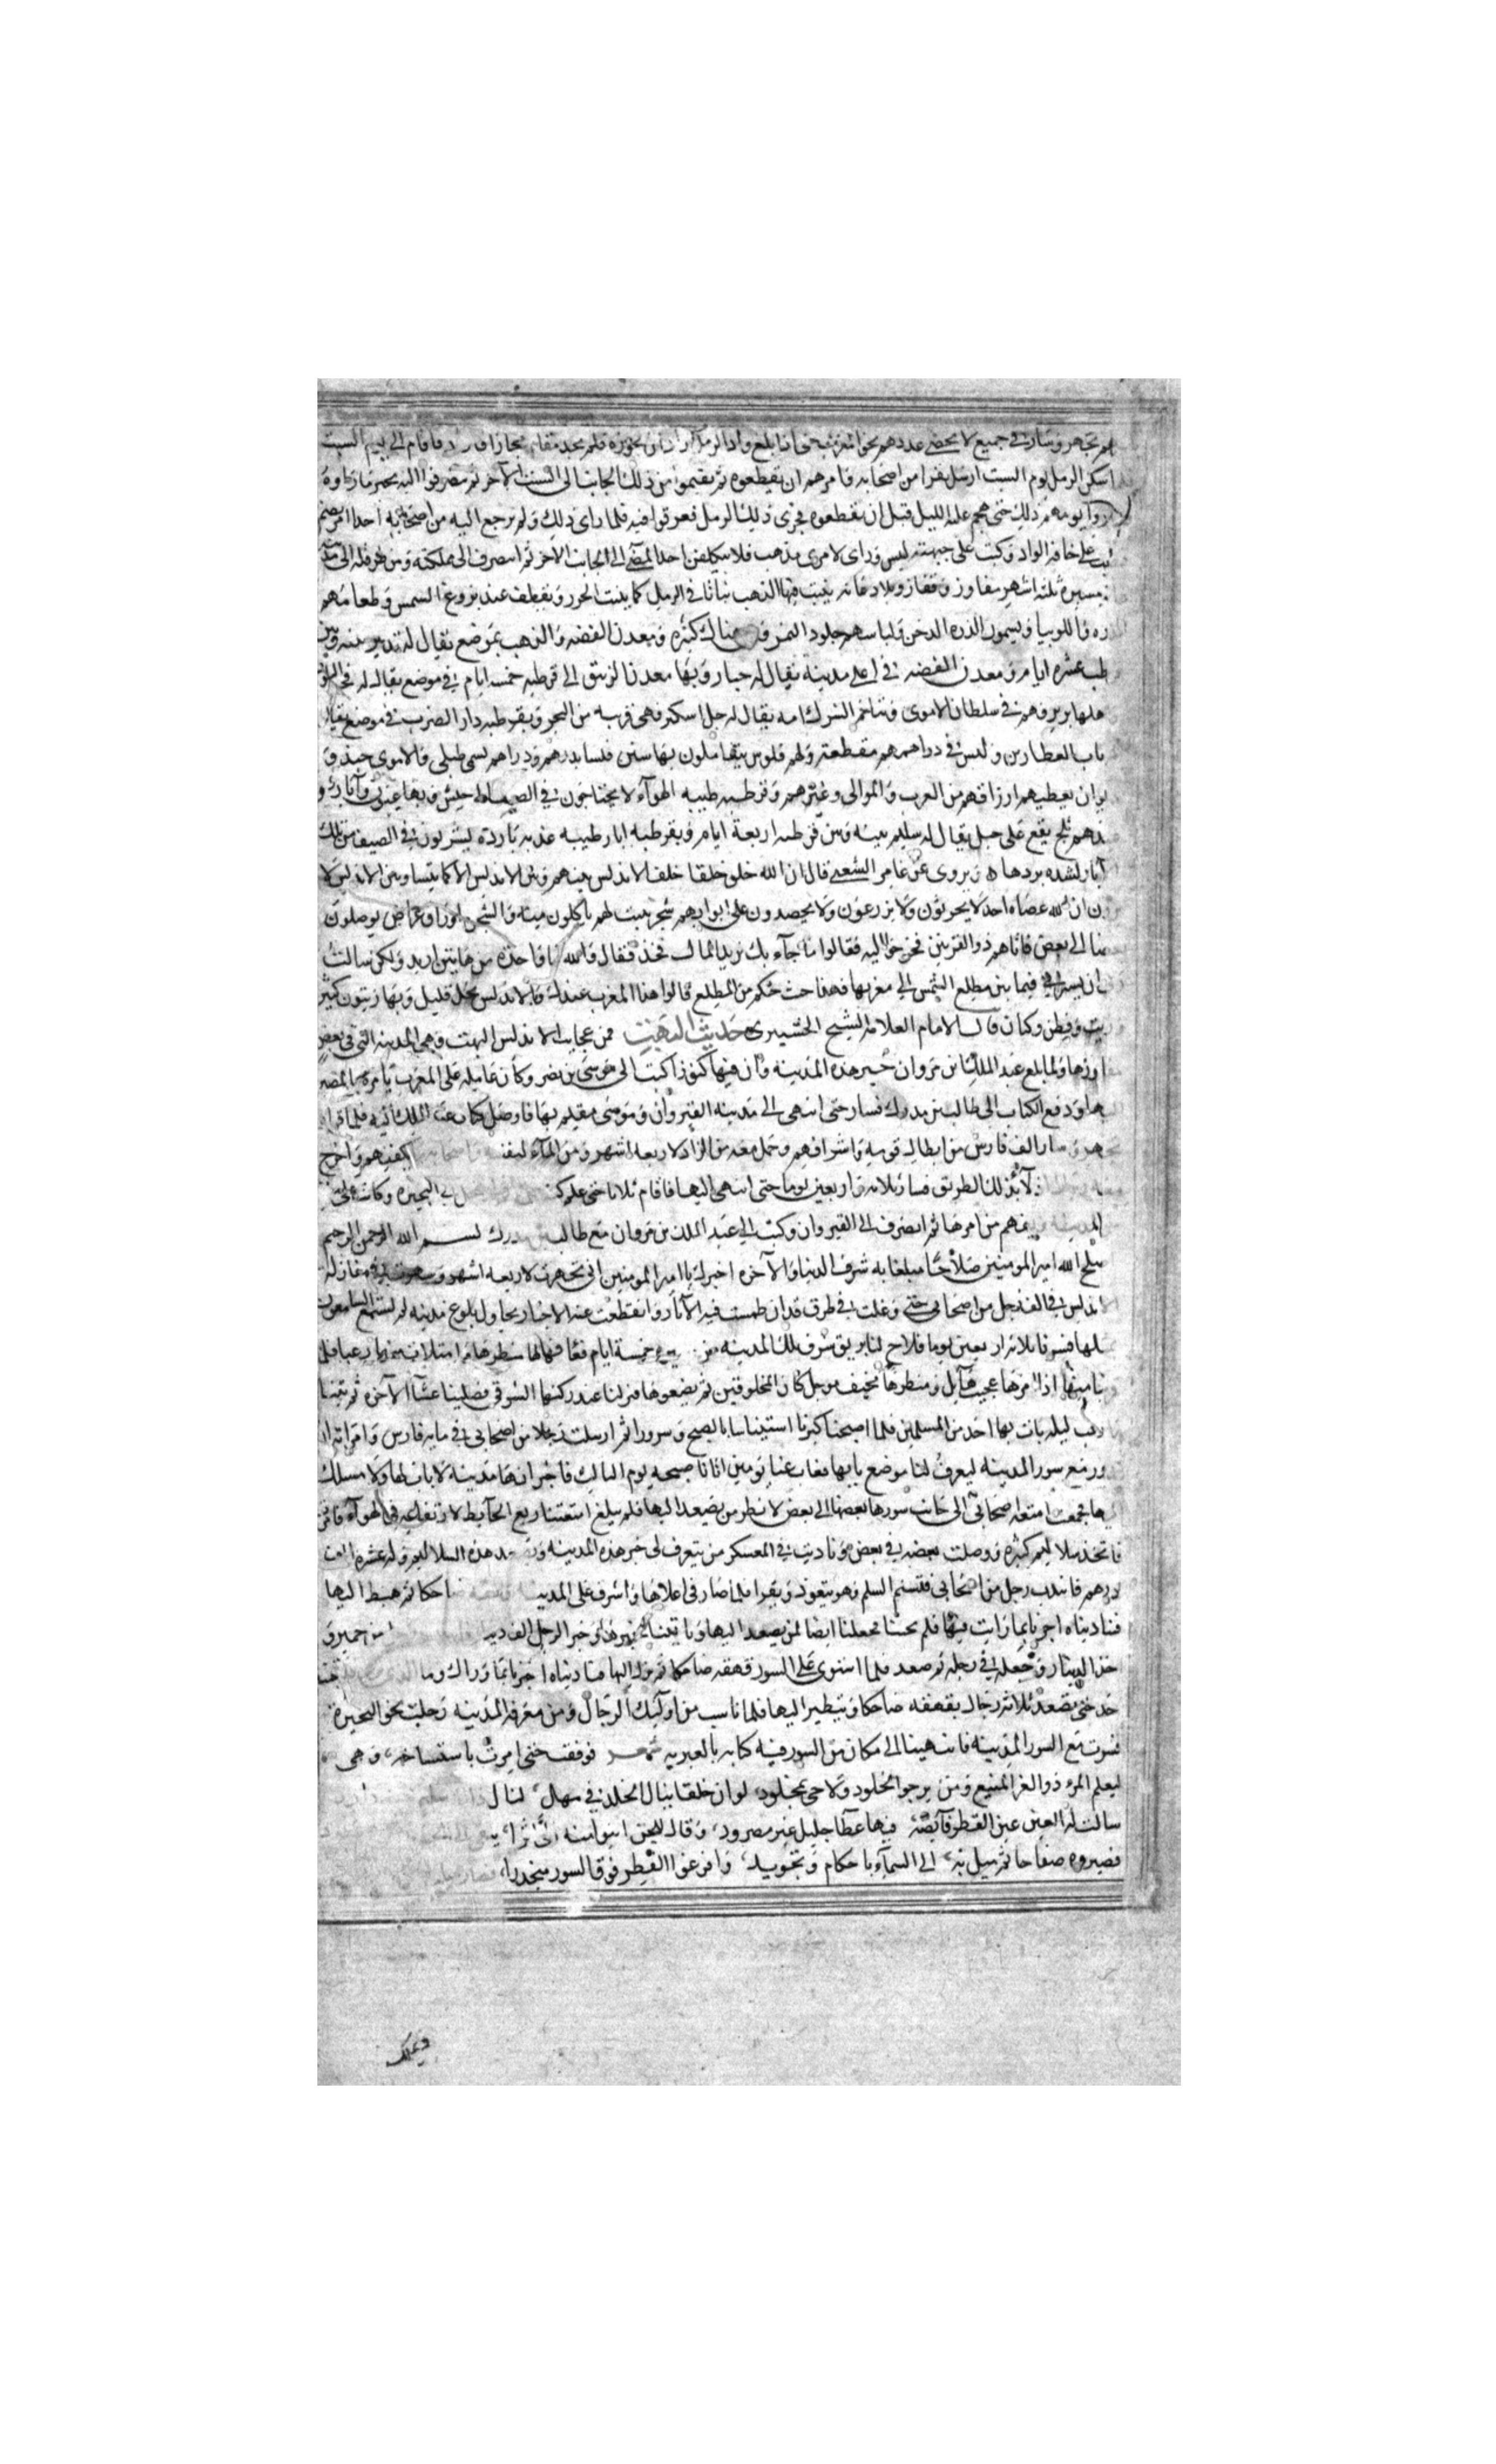 تجهز وسار في جميع لا يحصى عددهم نحو المغرب حتى اذا بلغ واد الرمل اراد ان يجوزه فلم يجد مقام مجازا فاقام الى يوم السبت
اسكن الرمل يوم السبت ارسل نفرا من اصحابه فامرهم ان يقطعوه ثم يقيموا من ذلك الجانب الى السبت الآخر ثم ينصرفوا اليه بخبر ما راوه
يومهم ذلك حتى هجم عليه الليل قبل ان يقطعوه فجرى ذلك الرمل فغرقوا فيه فلما راى ذلك ولم يرجع اليه من اصحابه احدا امر بصنم
على حافة الواد وكتب على جبهته ليس وراى لامرئ مذهب فلا يتكلفن احد المضي الى الجانب الاخر ثم انصرف الى مملكته
مسيرة ثلثة اشهر مفاوز وقفار وبلاد غانه ينبت فيها الذهب نباتا في الرمل كما ينبت الجزر ويقطف عند بزوغ الشمس وطعامهم
الذره واللوبيا ويسمون الذره الدخن ولباسهم جلود النمر هناك كثيره ومعدن الفضه والذهب بموضع يقال له تدمير بينه وبين
عشرة ايام ومعدن الفضه في اعلى مدينة يقال له جبار وبها معدن الزئبق الى قرطبه خمسة ايام في موضع يقال له فحص البلوط
اهلها بربر وهم في سلطان الاموى وتتاخم الشرك امه يقال له جل اسكس وهى قريبه من البحر وبقرطبه دار الضرب في موضع يقال
باب العطارين وليس في دراهمهم مقطعة ولهم فلوس يتعاملون بها ستين فلسا بدرهم ودراهم تسمى طبلى والاموى
ديوان يعطيهم ارزاقهم من العرب والموالى وغيرهم وقرطبه طيبه الهوآء لا يحتاجون في الصيف الى خيش وبها عيون وآبار
ثلج يقع على جبل يقال له سلير بينه وبين قرطبه اربعة ايام وبقرطبه ابار طيبه عذبه باردة يشربون في الصيف من تلك
آبار لشده بردها ويروى عن عامر الشعبى قال ان الله خلق خلقا خلف الاندلس بينهم وبين الاندلس الا كما بيننا وبين الاندلس لا
ان الله عصاه احد لا يحرثون ولا يزرعون ولا يحصدون على ابوابهم شجر ينبت لهم ياكلون منه والشجر اوراق عراض يوصلون
بعضا الى بعض فاتاهم ذو القرنين فخرجوا اليه فقالوا ما جآء بك تريد المال فخذ فقال والله ما واحدة من هاتين اريد ولكن سالت
ان يسيرني فيما بين مطلع الشمس الى مغربها فهذا حث حكم من المطلع قالوا هذا المغرب عندك والاندلس نخل قليل وبها زيتون كثير
زيت وقطن وكتان قال الامام العلامة الشيخ الحسيرى حديث البهت فمن عجايب الاندلس البهت وهى المدينه التى في بعض
مفاوزها ولما بلغ عبد الملك بن مروان خبر هذه المدينة وان فيها كنوزا كتب الى موسى بن نصر وكان عامله على المغرب يامره بالمصير
اليها ودفع الكتاب الى طالب بن مدرك فسار حتى انتهى الى مدينه القيروان وموسى مقيم بها فاوصل كتاب عبد الملك اليه فلما قراه
تجهز وسار الف فارس من ابطال قومه واشرافهم وحمل معه من الزاد لاربعة اشهر ومن المآء يكفيهم واخرج
الادلآء بذلك الطريق فسار ثلاثه واربعين يوما حتى انتهى اليها فاقام ثلاثا حتى علم البحيرة وكانت على
المدينه من امرها ثم انصرف الى القيروان وكتب الى عبد الملك بن مروان مع طالب بن مدرك بسم الله الرحمن الرحيم
اصلح الله امير المومنين صلاحا مبلغا به شرف الدنيا والآخره اخبرك يا امير المومنين انى تجهزت لاربعة اشهر وسرت نحو مفاوز
الاندلس في الف رجل من اصحابى حتى وغلت في طرق قد انطمست فيه الآثار وانقطعت عنه الاخبار احاول بلوغ مدينه لم يسمع السامعون
بمثلها فسرنا ثلاثه واربعين يوما فلاح لنا بريق شرف تلك المدينه من مسيرة خمسة ايام فهالنا منظرها وامتلات قلوبنا رعبا فلما
دنا منها اذا امرها عجيب هايل ومنظرها مخيف موجل كان المخلوقين لم يضعوها فنزلنا عند ركنها الشرقى فصلينا عشآ الآخره ثم بتنا
بارعب ليله بات بها احد من المسلمين فلما اصبحنا كبرنا استيناسا بالصبح وسرورا ثم ارسلت رجلا من اصحابى في مايه فارس وامرته ان
يدور مع سور المدينه ليعرف لنا موضع بابها فغاب عنا يومين اتانا صبيحه يوم الثالث فاخبر انها مدينه لا باب لها ولا مسلك
اليها فجمعت امتعة اصحابى الى جانب سورها بعضها الى بعض لانظر من يصعد اليها فلم يبلغ امتعتنا ربع الحايط لارتفاعه في الهوآء
فاتخذ سلاليم كثيره ووصلت بعضه في بعض وناديت في المعسكر من يتعرف لى خبر هذه المدينه هذه السلاليم وله عشرة الف
درهم فانتدب رجل من اصحابى فتسنم السلم وهو يتعوذ ويقرا فلما صار في اعلاها واشرف على المدينه ضاحكا ثم هبط اليها
فناديناه اخبرنا بما رايت فيها فلم يجبنا فجعلنا ايضا لمن يصعد اليها وياتينا بخبرها وخبر الرجل الف دينار من حمير و
اخذ الدينار وجعله في رحله ثم صعد فلما استوى على السور قهقه ضاحكا ثم نزل اليها فناديناه اخبرنا بما وراك وما الذى
حتى صعد ثلاثة رجال يقهقه ضاحكا ويتطير اليها فلما ايست من اوليك الرجال ومن معرفه المدينه رحلت نحو البحيرة
فسرت مع السور المدينه فانتهينا الى مكان من السور فيه كتابه بالعبريه فوقفت حتى امرت باستنساخه وهى
ليعلم المرء ذو الغر المنيع ومن يرجو الخلود ولا حى بمخلود لو ان خلقا ينال الخلد في مهل لنال
سالت له العين عين القطر فآيضة فيها عطا جليل غير مصرود وقال للجن ابنوا منه الى اثرا
فصيروه صفاحا ثم ميل به الى السمآء باحكام وتجويد وافرغوا القطر فوق السور منحدرا
وتملك